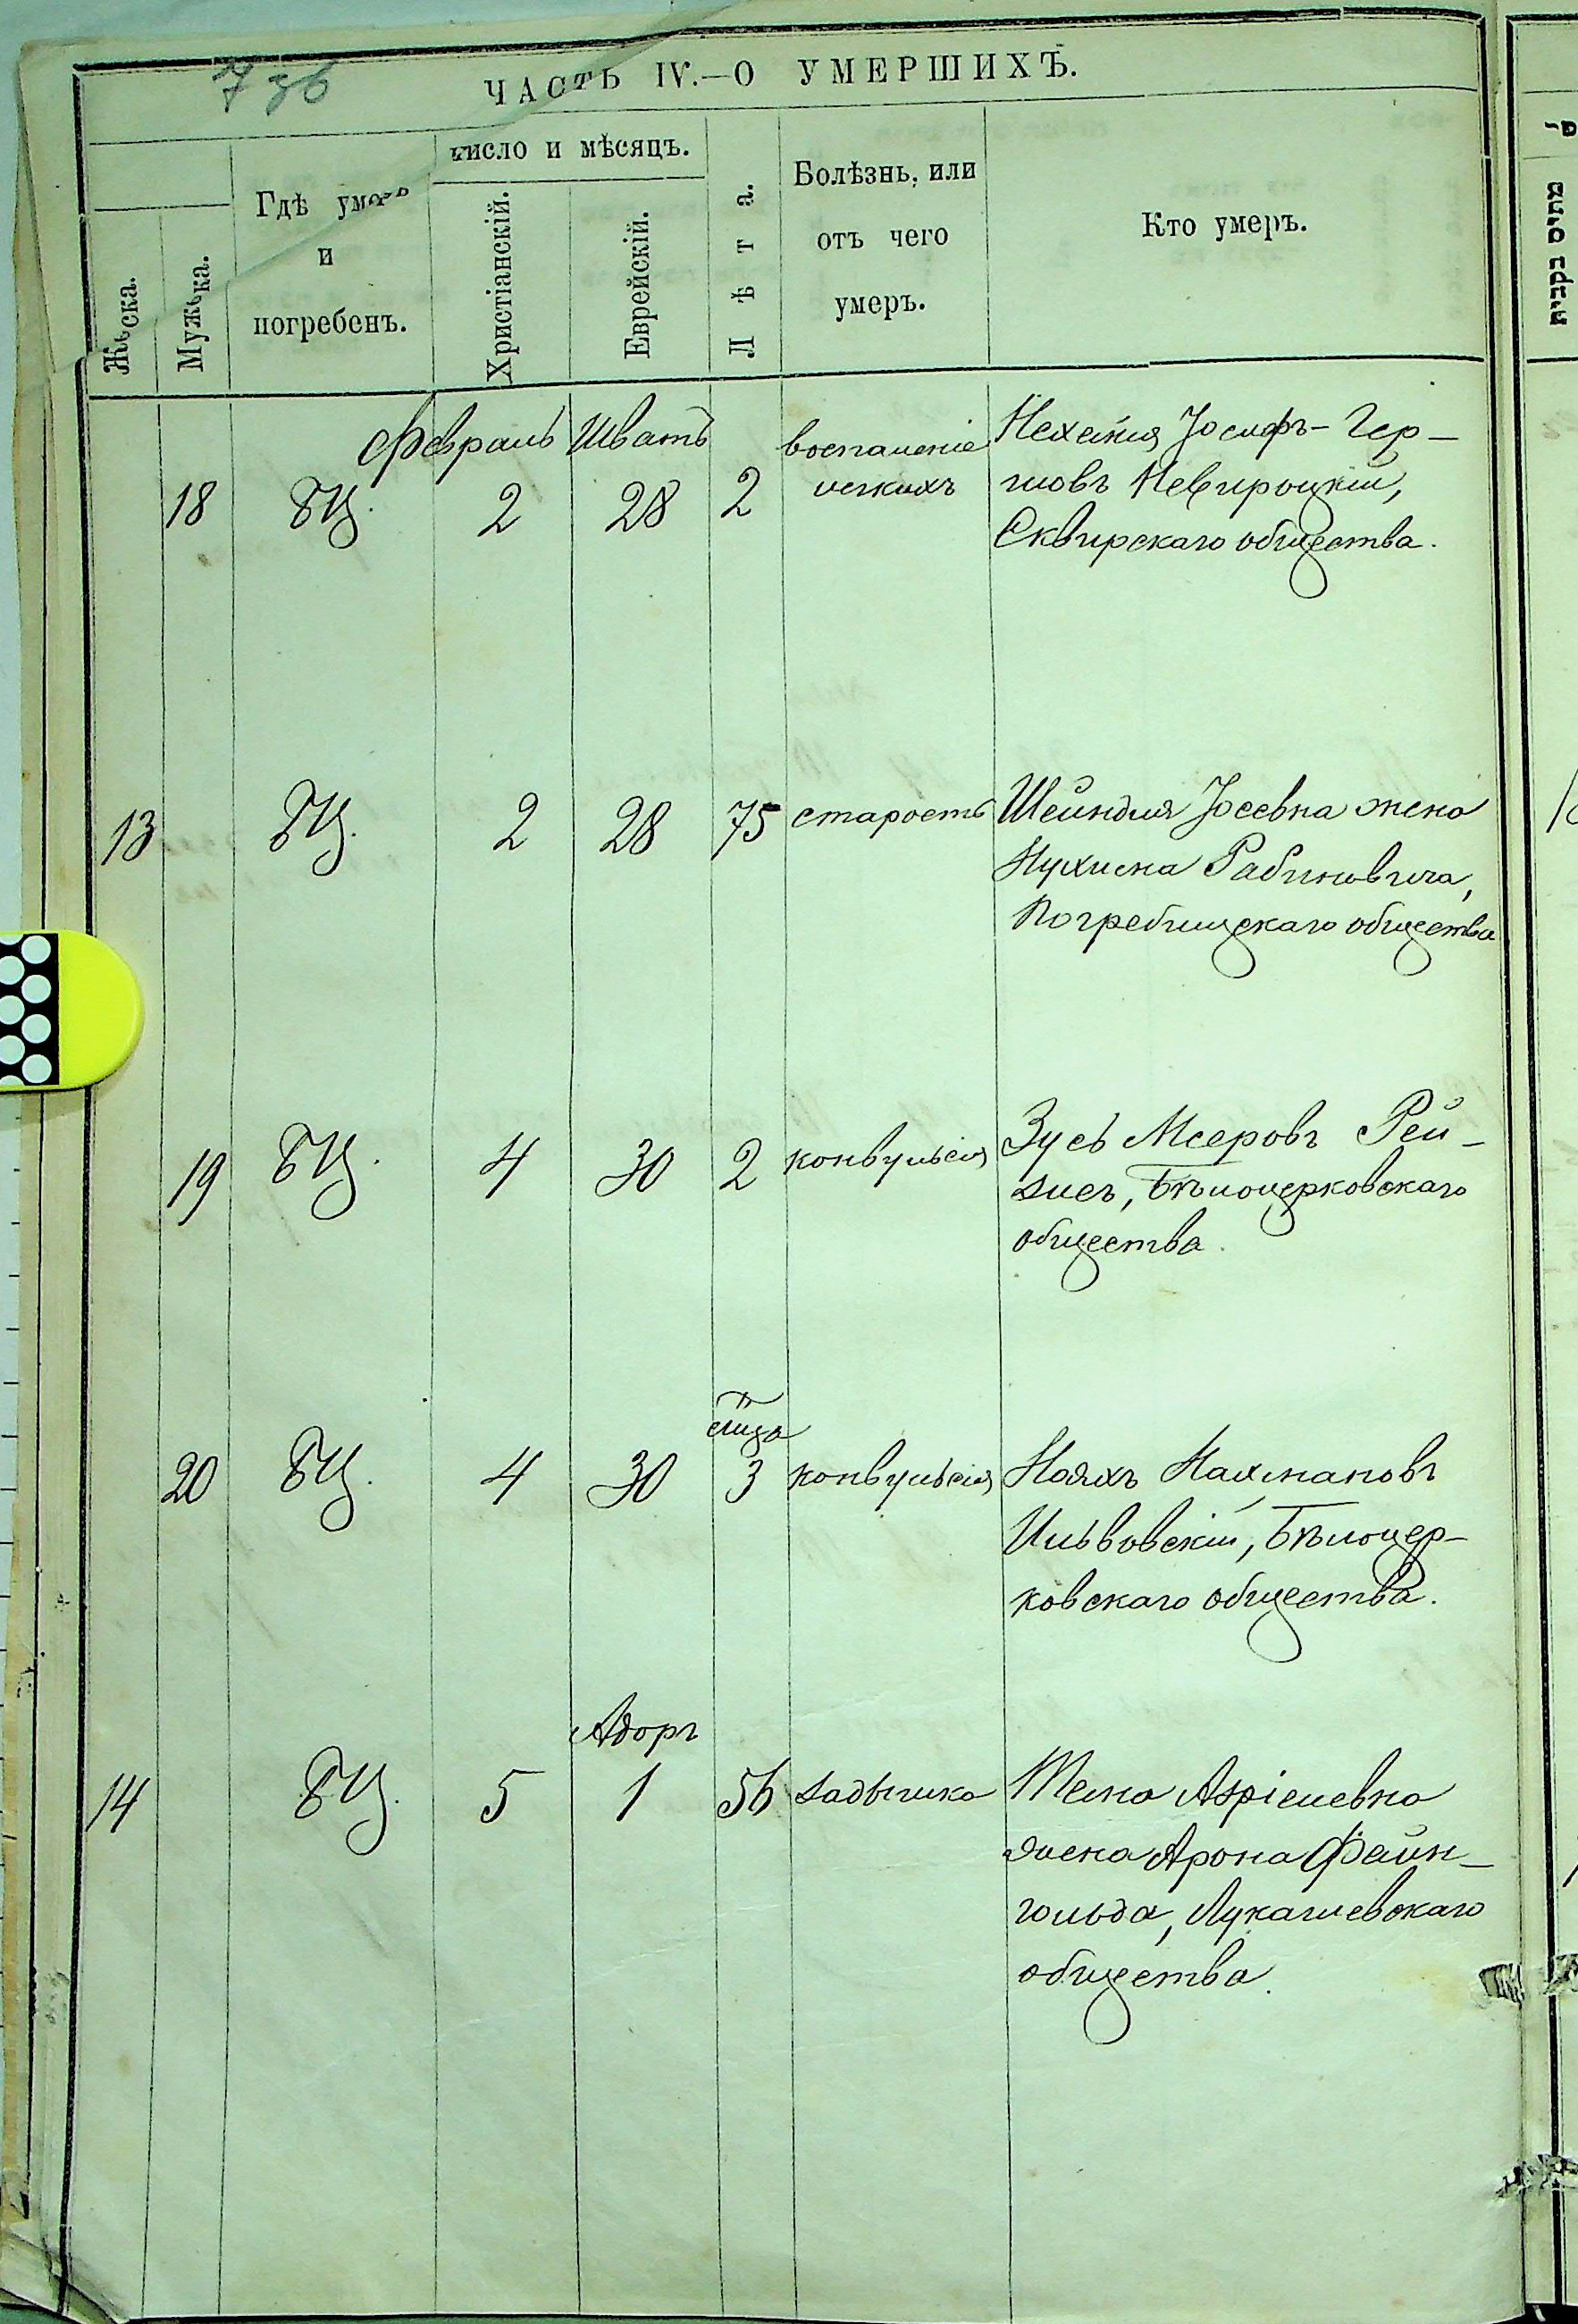 7 зв
ЧАСТЬ IV.—О УМЕРШИХЪ.
Женска.
Мужска.
Гдѣ умеръ
и
погребенъ.
Число и мѣсяцъ.
Христіанскій.
Еврейскій.
Лѣта.
Болѣзнь, или
отъ чего
умеръ.
Кто умеръ.
Февраль Шватъ
18 БЦ. 2 28 2 воспаленіе
легкихъ
Нехемія Іосифъ-Гер-
шовъ Невироцкій,
Сквирскаго общества.
13 БЦ. 2 28 75 старость
Шейндля Іосевна жена
Нухима Рабиновича,
Погребищскаго общества
19 БЦ. 4 30 2 конвульсія
Зусь Мееровъ Рей-
зисъ, Бѣлоцерковскаго
общества.
20 БЦ. 4 30 3 конвульсія
Нояхъ Нахмановъ
Ильвовскій, Бѣлоцер-
ковскаго общества.
Адоръ
14 БЦ. 5 1 56 задышка
Темa Азріелевна
жена Арона Файн-
гольда, Лукашевскаго
общества.